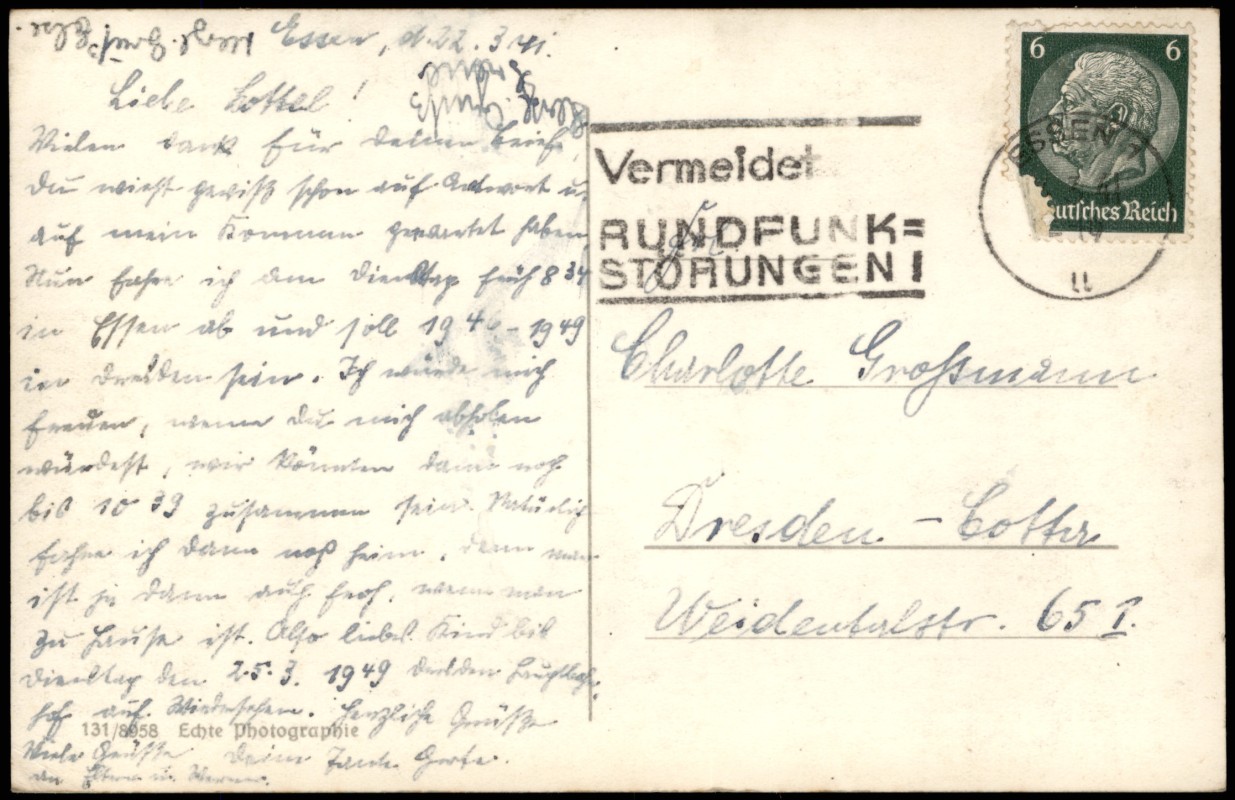 Essen, d. 22. 3. 41.
Liebe Lottel!
Vielen Dank für deinen Brief,
du wirst gewiß schon auf Antwort u.
auf mein Kommen gewartet haben.
Nun fahre ich am Dienstag früh 8 34
in Essen ab und soll 19 46 – 19 49
in Dresden sein. Ich würde mich
freuen, wenn du mich abholen
würdest, wir könnten dann noch
bis 10 39 zusammen sein. Natürlich
fahre ich dann noch heim, denn man
ist ja dann auch froh, wenn man
zu Hause ist. Also liebes Kind bis
Dienstag den 25. 3. 19 49 Dresden
hof auf Wiedersehen. Herzliche Grüße
Viele Grüße deine Tante
an Eltern u. Werner.
131/8958 Echte Photographie
Vermeidet
RUNDFUNK=
STÖRUNGEN!
6 6
Deutsches Reich
ESSEN 1
tt
Charlotte Großmann
Dresden – Cotta
Weidentalstr. 65 I.